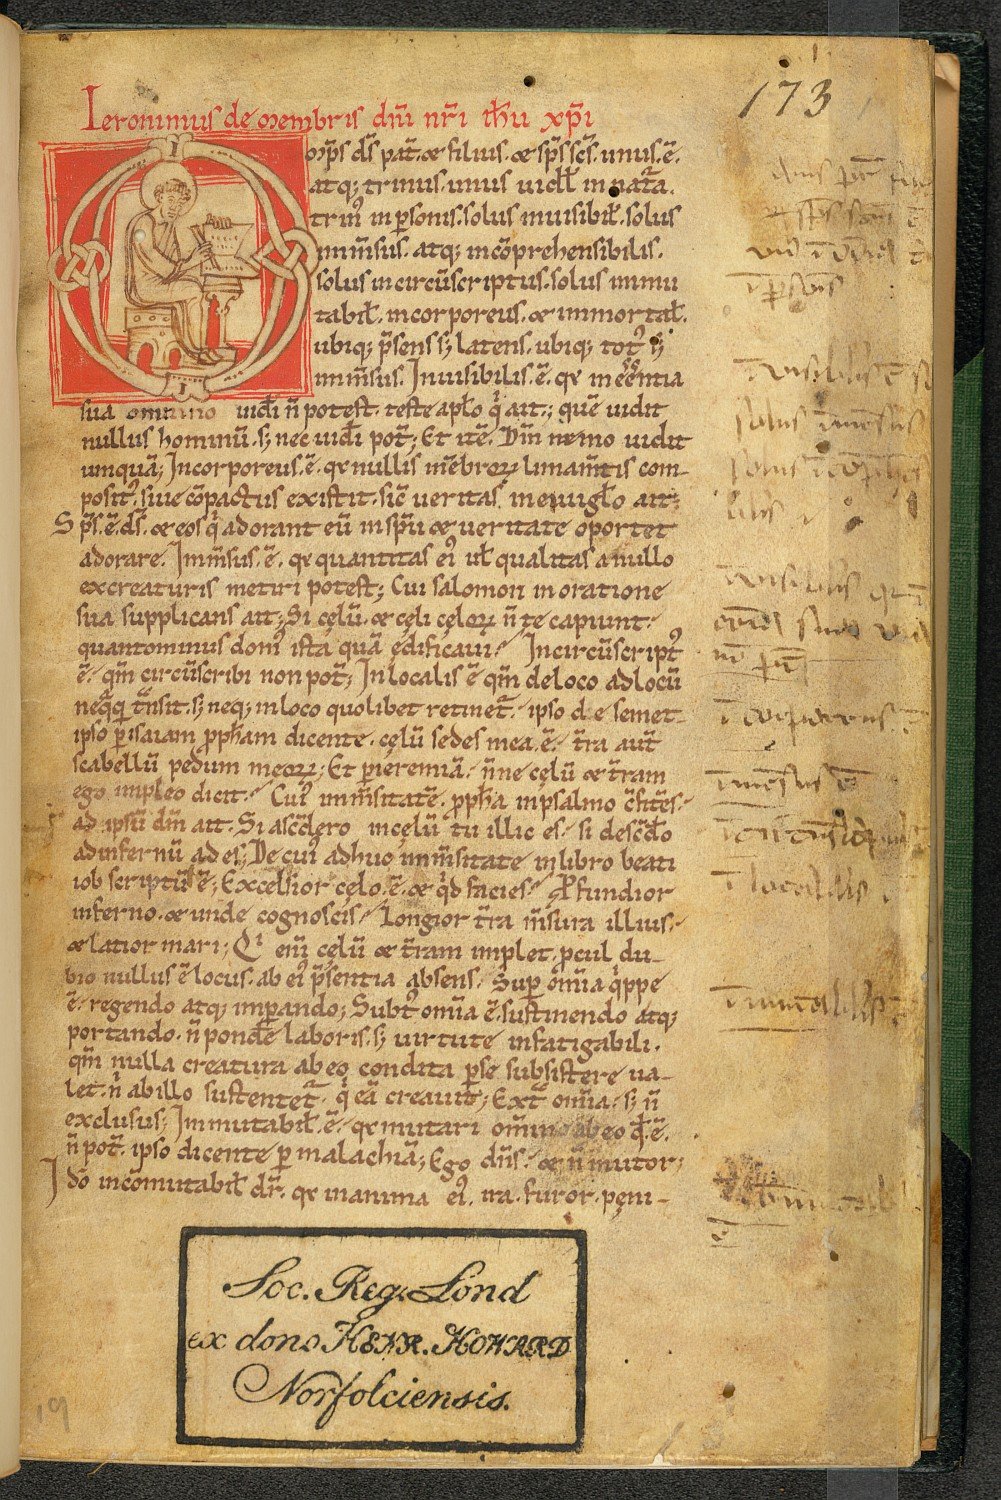 173
Ieronimus de membris dn̄i nr̄i ih̄u xp̄i
Om̄ps ds̄ pat̄. & filius. & sp̄s sc̄s. unus. ē.
atq; trinus. unus uidel̄ in nat̄a.
trin᷒ in p̱sonis. solus inuisibil̄. solus
inm̄sus. atq; incōprehensibilis.
solus incircūscriptus. solus inmu
tabil̄. incorporeus. & inmortal̄.
ubiq; p̄sens s; latens. ubiq; tot᷒ s;
inm̄sus. Inuisibilis. ē. qr in eēntia
sua omnino uidi n̄ potest. teste apl̄o q̇ ait.; quē uidit
nullus hominū. s; nec uidi pot̄; Et itē. Dm̄ nemo uidit
umquā; Incorporeus. ē. qr nullis mēbroꝝ liniam̄tis com-
posit᷒. siue cōpactus existit. sic̄ ueritas in euuigl̄o ait;
Sp̄s. ē. ds̄. & eos q̇ adorant eū in sp̄u & ueritate oportet
adorare. Inm̄sus. ē. qr quantitas ei᷒ ul̄ qualitas a nullo
ex creaturis metiri potest; Cui salomon in oratione
sua supplicans ait; Si cęlū. & cęli cęloꝝ n̄ te capiunt.
quantominus dom᷒ ista quā ędificaui. Incircūscript᷒
ē. qm̄ circūscribi non pot̄; Inlocalis ē qm̄ de loco ad locū
neq̄q̄ t̄nsit. s; neq; in loco quolibet retinet̄. ipso de semet-
ipso p̱ isaiam pp̄ham dicente. cęlū sedes mea. ē. t̄ra aut̄
scabellū pedum meoꝝ; Et p̱ ieremiā. n̄ne cęlū & t̄ram
ego impleo dicit. Cui᷒ inm̄sitatē. pp̄ha in psalmo c̄fitēs.
ad ipsū dm̄ ait. Si asc̄dero in cęlū tu illic es. si desc̄dō
ad infernū ad es; De cui᷒ adhuc inm̄sitate in libro beati
iob scriptū ē; Excelsior cęlo. ē. & q̇d facies. Ꝓfundior
inferno. & unde cognoscis. Longior t̄ra m̄sura illius.
& latior mari; Qi eni᷒ cęlū & t̄ram implet. ꝓcul du-
bio nullus ē locus. ab ei᷒ p̄sentia absens. Sup̱ om̄ia q̇ppe
ē. regendo atq; imp̱ando; Subt᷒ om̄ia ē. sustinendo atq;
portando. n̄ pondē laboris. s; uirtute infatigabili.
qm̄ nulla creatura ab eo condita p̱ se subsistere ua-
let. n̄ ab illo sustentet̄. q̇ eā creauit; Ext̄ om̄ia. s; n̄
exclusus; Inmutabil̄. ē. qr mutari om̄ino ab eo qd̄. ē.
n̄ pot̄. ipso dicente p̱ malachiā; Ego dn̄s. & n̄ mutor;
Idō incōmutabil̄ dr̄. qr in anima ei᷒. ira. furor. pęni-
Soc. Reg. Lond
ex dono HENR. HOWARD
Norfolciensis.
19